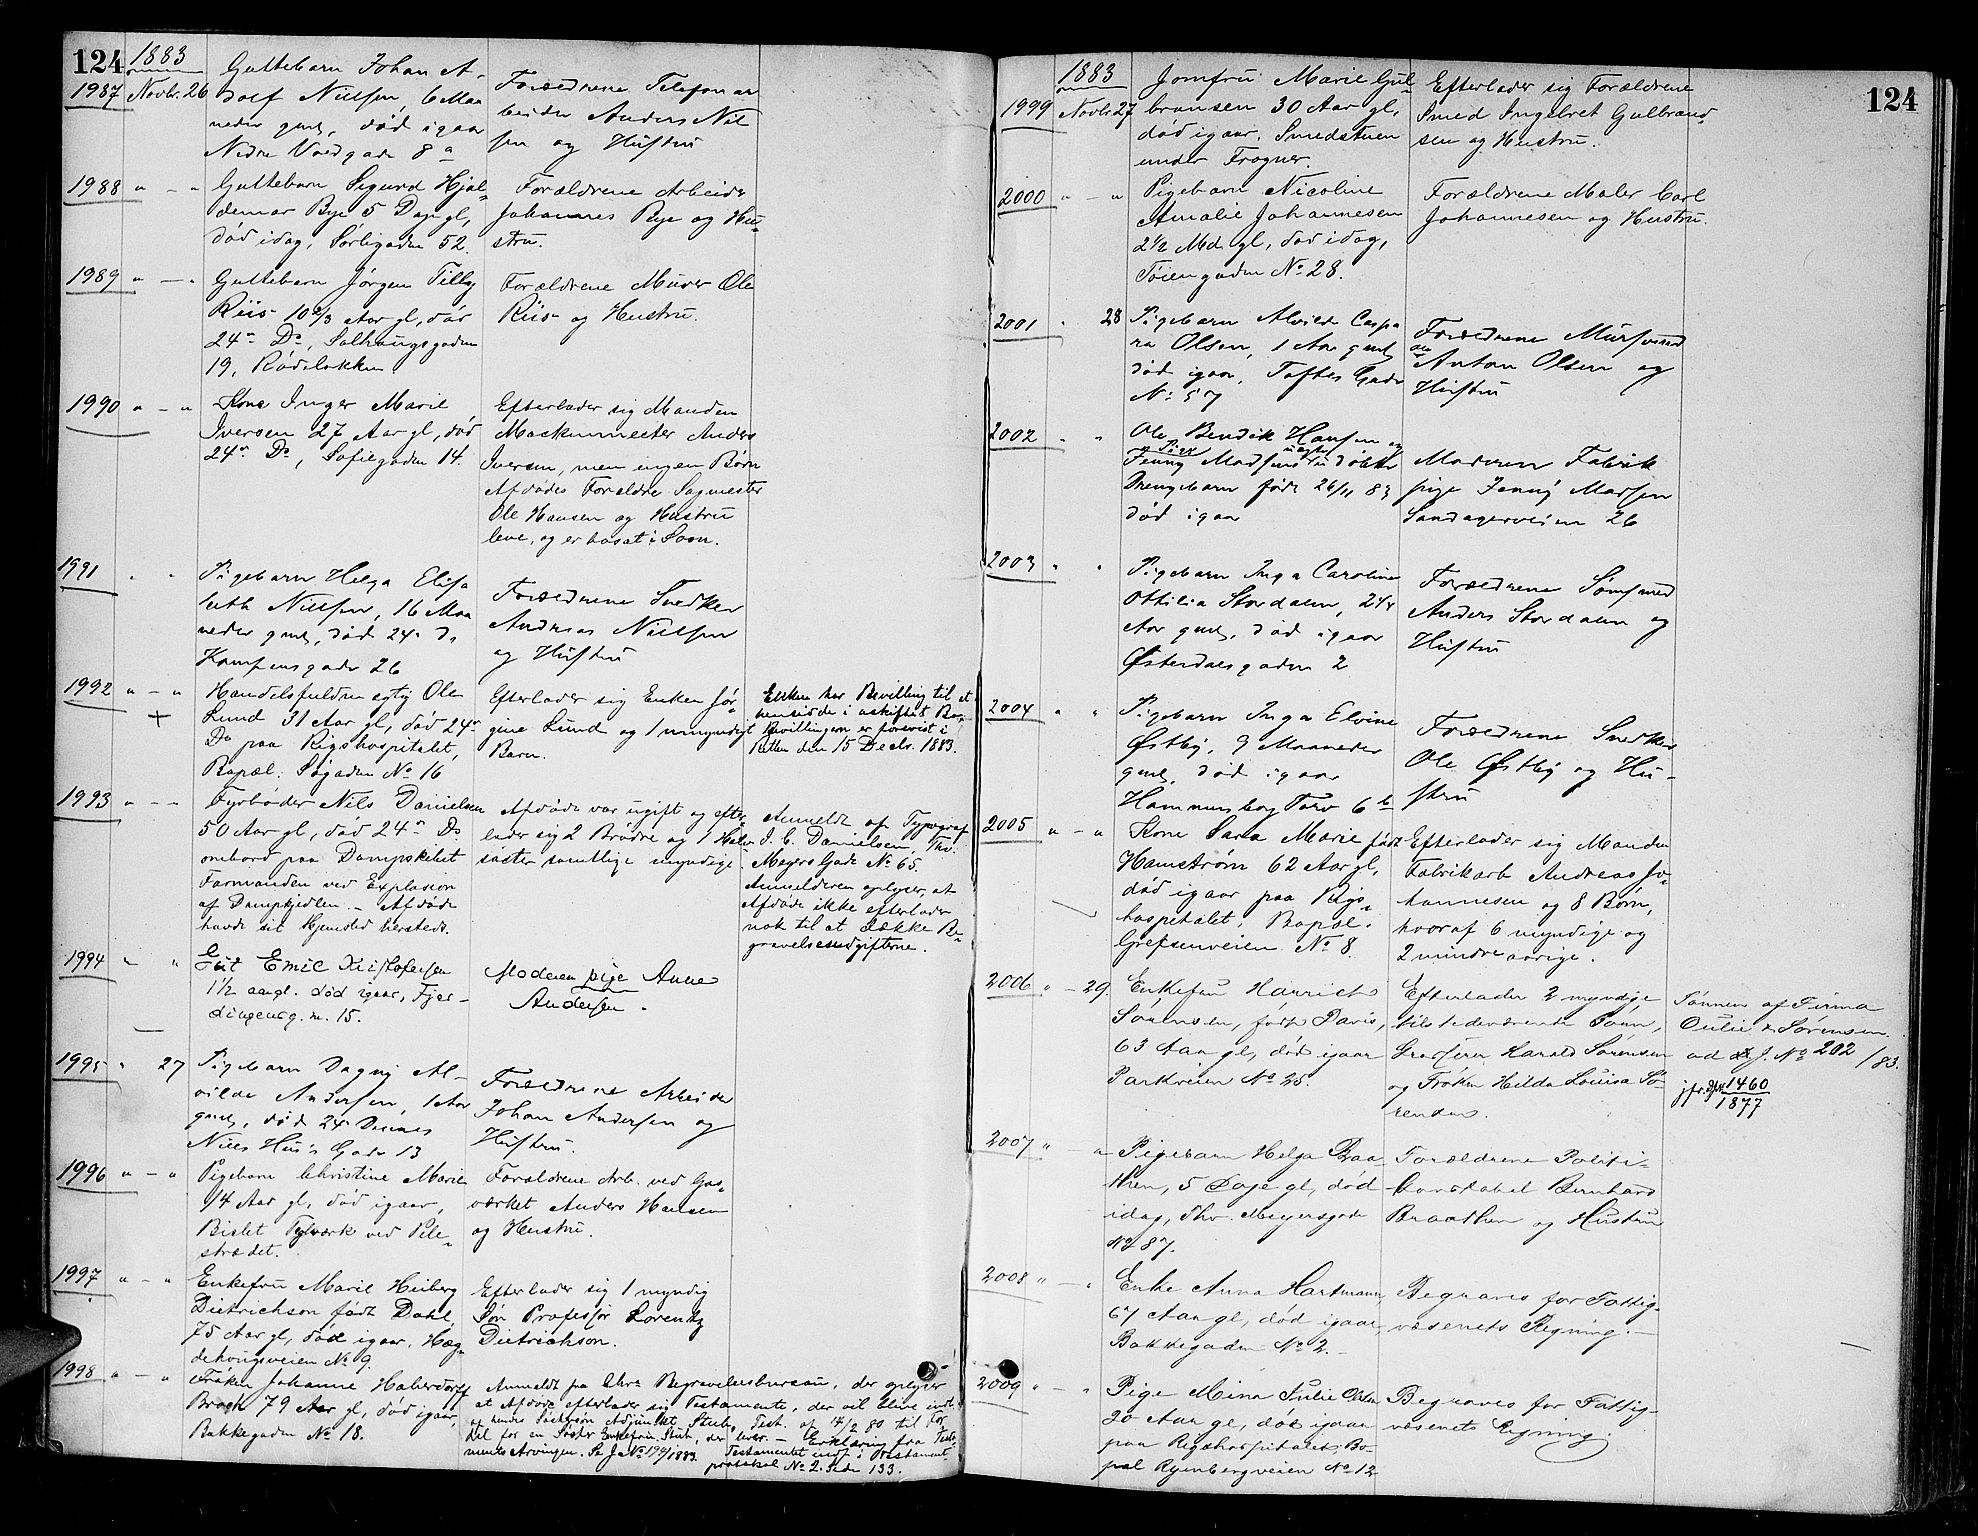 124
1883
1987 Novbr. 26 Guttebarn Johan A-
dolf Nielsen, 6 Maa
neder gml, død igaar
Nedre Voldgade 8 a
Forældrene Telefonar
beider Anders Niel
sen og Hustru
1988 " - " Guttebarn Sigurd Hjal-
demar Bye 5 Dage gl,
død idag, Sørligaden 52.
Forældrene Arbeider
Johannes Bye og Hu-
stru.
1989 " - " Guttebarn Jørgen Tilby
Riis 10 2/3 Aar gl, død
24de Ds, Solhaugsgaden
19, Rodeløkken
Forældrene Murer Ole
Riis og Hustru.
1990 " - " Kone Inger Marie
Iversen 27 Aar gl, død
24de Ds, Sofiegaden 14.
Efterlader sig Manden
Maskinmester Anders
Iversen, men ingen Børn
Afdødes Forældre Sagmester
Ole Hansen og Hustru
leve, og er bosat i Sosn.
1991 " " Pigebarn Helga Elisa
beth Nielsen, 16 Maa
neder gml, død 24de ds
Kampensgade 26
Forældrene Snedker
Andreas Nielsen
og Hustru
1992 " - " Handelsfuldmægtig Ole
Lund 31 Aar gl, død 24de
Ds paa Rigshospitalet,
Bopæl: Søgaden No 16
Efterlader sig Enken Jør-
gine Lund og 1 umyndigt
Barn.
Enken har Bevilling til at
hensidde i uskiftet Bo,
Bevillingen er forevist i
Retten den 15 Decbr. 1883.
1993 " - " Fyrbøder Nils Danielsen
50 Aar gl, død 24de Ds
ombord paa Dampskibet
Farmanden ved Explosion
af Dampkjedlen. - Afdøde
havde sit Hjemsted hersteds.
Afdøde var ugift og efter-
lader sig 2 Brødre og 1 Halv
søster samtlige myndige
Anmeldt af Typograf
I. C. Danielsen, Thv.
Meyers Gade No 65.
Anmelderen oplyser, at
Afdøde ikke efterlader
nok til at dække Be-
gravelsesudgifterne.
1994 " " Gut Emil Kristofersen
1 1/2 aar gl. død igaar, Fjer-
dingenrg. n. 15.
Moderen pige Anne
Andersen.
1995 " 27 Pigebarn Dagny Al-
vilde Andersen, 1 Aar
gml, død 24 Dennes
Niels Hus's Gade 13
Forældrene Arbeider
Johan Andersen og
Hustru.
1996 " - " Pigebarn Christine Marie
1/4 Aar gl, død igaar,
Bislet Teglværk ved Pile-
strædet.
Forældrene Arb. ved Gas-
værket Anders Hansen
og Hustru.
1997 " - " Enkefru Marie Heiberg
Dietrichson født Dahl,
75 Aar gl, død igaar, Hæg-
dehougsveien No 9.
Efterlader sig 1 myndig
Søn Professor Lorentz
Dietrichson.
1998 " - " Frøken Johanne Haberdorff
Brock 79 Aar gl, død igaar,
Bakkegaden No 18.
Anmeldt fra Chra Begravelsesbureau, der oplyser
at Afdøde efterlader sig Testamente, der vil blive indt.
af hendes Søstersøn Adjunkt Stub, Test. af 14/2 80 til For
Del for en Søster Enkefru Stub, der lever. - Erklæring fra Testa-
mentsArvingen. Se J No 199/1883. Testamentet indf. i Testament
protokol No 2. Side 133.
124
1883
1999 Novbr 27 Jomfru Marie Gul-
bransen 30 Aar gl,
død igaar, Smedstuen
under Frogner.
Efterlader sig Forældrene
Smed Ingebret Gulbrand-
sen og Hustru.
2000 " - " Pigebarn Nicoline
Amalie Johannesen
2 1/2 Md. gl, død idag,
Tøiengaden No 28.
Forældrene Maler Carl
Johannesen og Hustru.
2001 " 28 Pigebarn Alvilde Caspa
ra Olsen, 1 Aar gml
død igaar, Toftes Gade
No 57
Forældrene Mursvend
Anton Olsen og
Hustru
2002 " " Ole Bendik Hansen og
Pige Jenny Madsens uægte udøbte
Drengebarn født 26/11 83
død igaar
Moderen Fabrik
pige Jenny Madsen
Sandagerveien 26
2003 " " Pigebarn Inga Caroline
Ottilia Stordalen, 2 1/4
Aar gml, død igaar
Østerdalsgaden 2
Forældrene Sømsmed
Anders Stordalen og
Hustru
2004 " " Pigebarn Inga Elvine
Østby, 9 Maaneder
gml, død igaar
Hammersborg Torv 6 b
Forældrene Snedker
Ole Østby og Hu-
stru
2005 " - " Kone Sara Marie født
Hamstrøm 62 Aar gl,
død igaar paa Rigs-
hospitalet, Bopæl:
Grefsenveien No 8.
Efterlader sig Manden
Fabrikarb Andreas Jo-
hannesen og 8 Børn,
hvoraf 6 myndige og
2 mindreaarige.
2006 " - 29. Enkefru Henriette
Sørensen, født Paris,
63 Aar gl, død igaar
Parkveien No 25.
Efterlader 2 myndige
tilstedeværende Børn,
Grosserer Harald Sørensen
og Frøken Hilda Louisa Sø-
rensen.
Sønnen af Firma
Oulie & Sørensen.
ad J. No 202/83.
jfr. 1460/1877
2007 " - " Pigebarn Helga Braa-
then, 5 Dage gl, død
idag, Thv Meyersgade
No 87.
Forældrene Politi-
konstabel Bernhard
Braathen og Hustru
2008 " - " Enke Anna Hartmann,
67 Aar gl, død igaar,
Bakkegaden No 2.
Begraves for Fattig-
væsenets Regning.
2009 " - " Pige Mina Julie Olsen
20 Aar gl, død igaar
paa Rigshospitalet, Bo-
pæl Ryenbergveien No 12
Begraves for Fattig-
væsenets Regning.